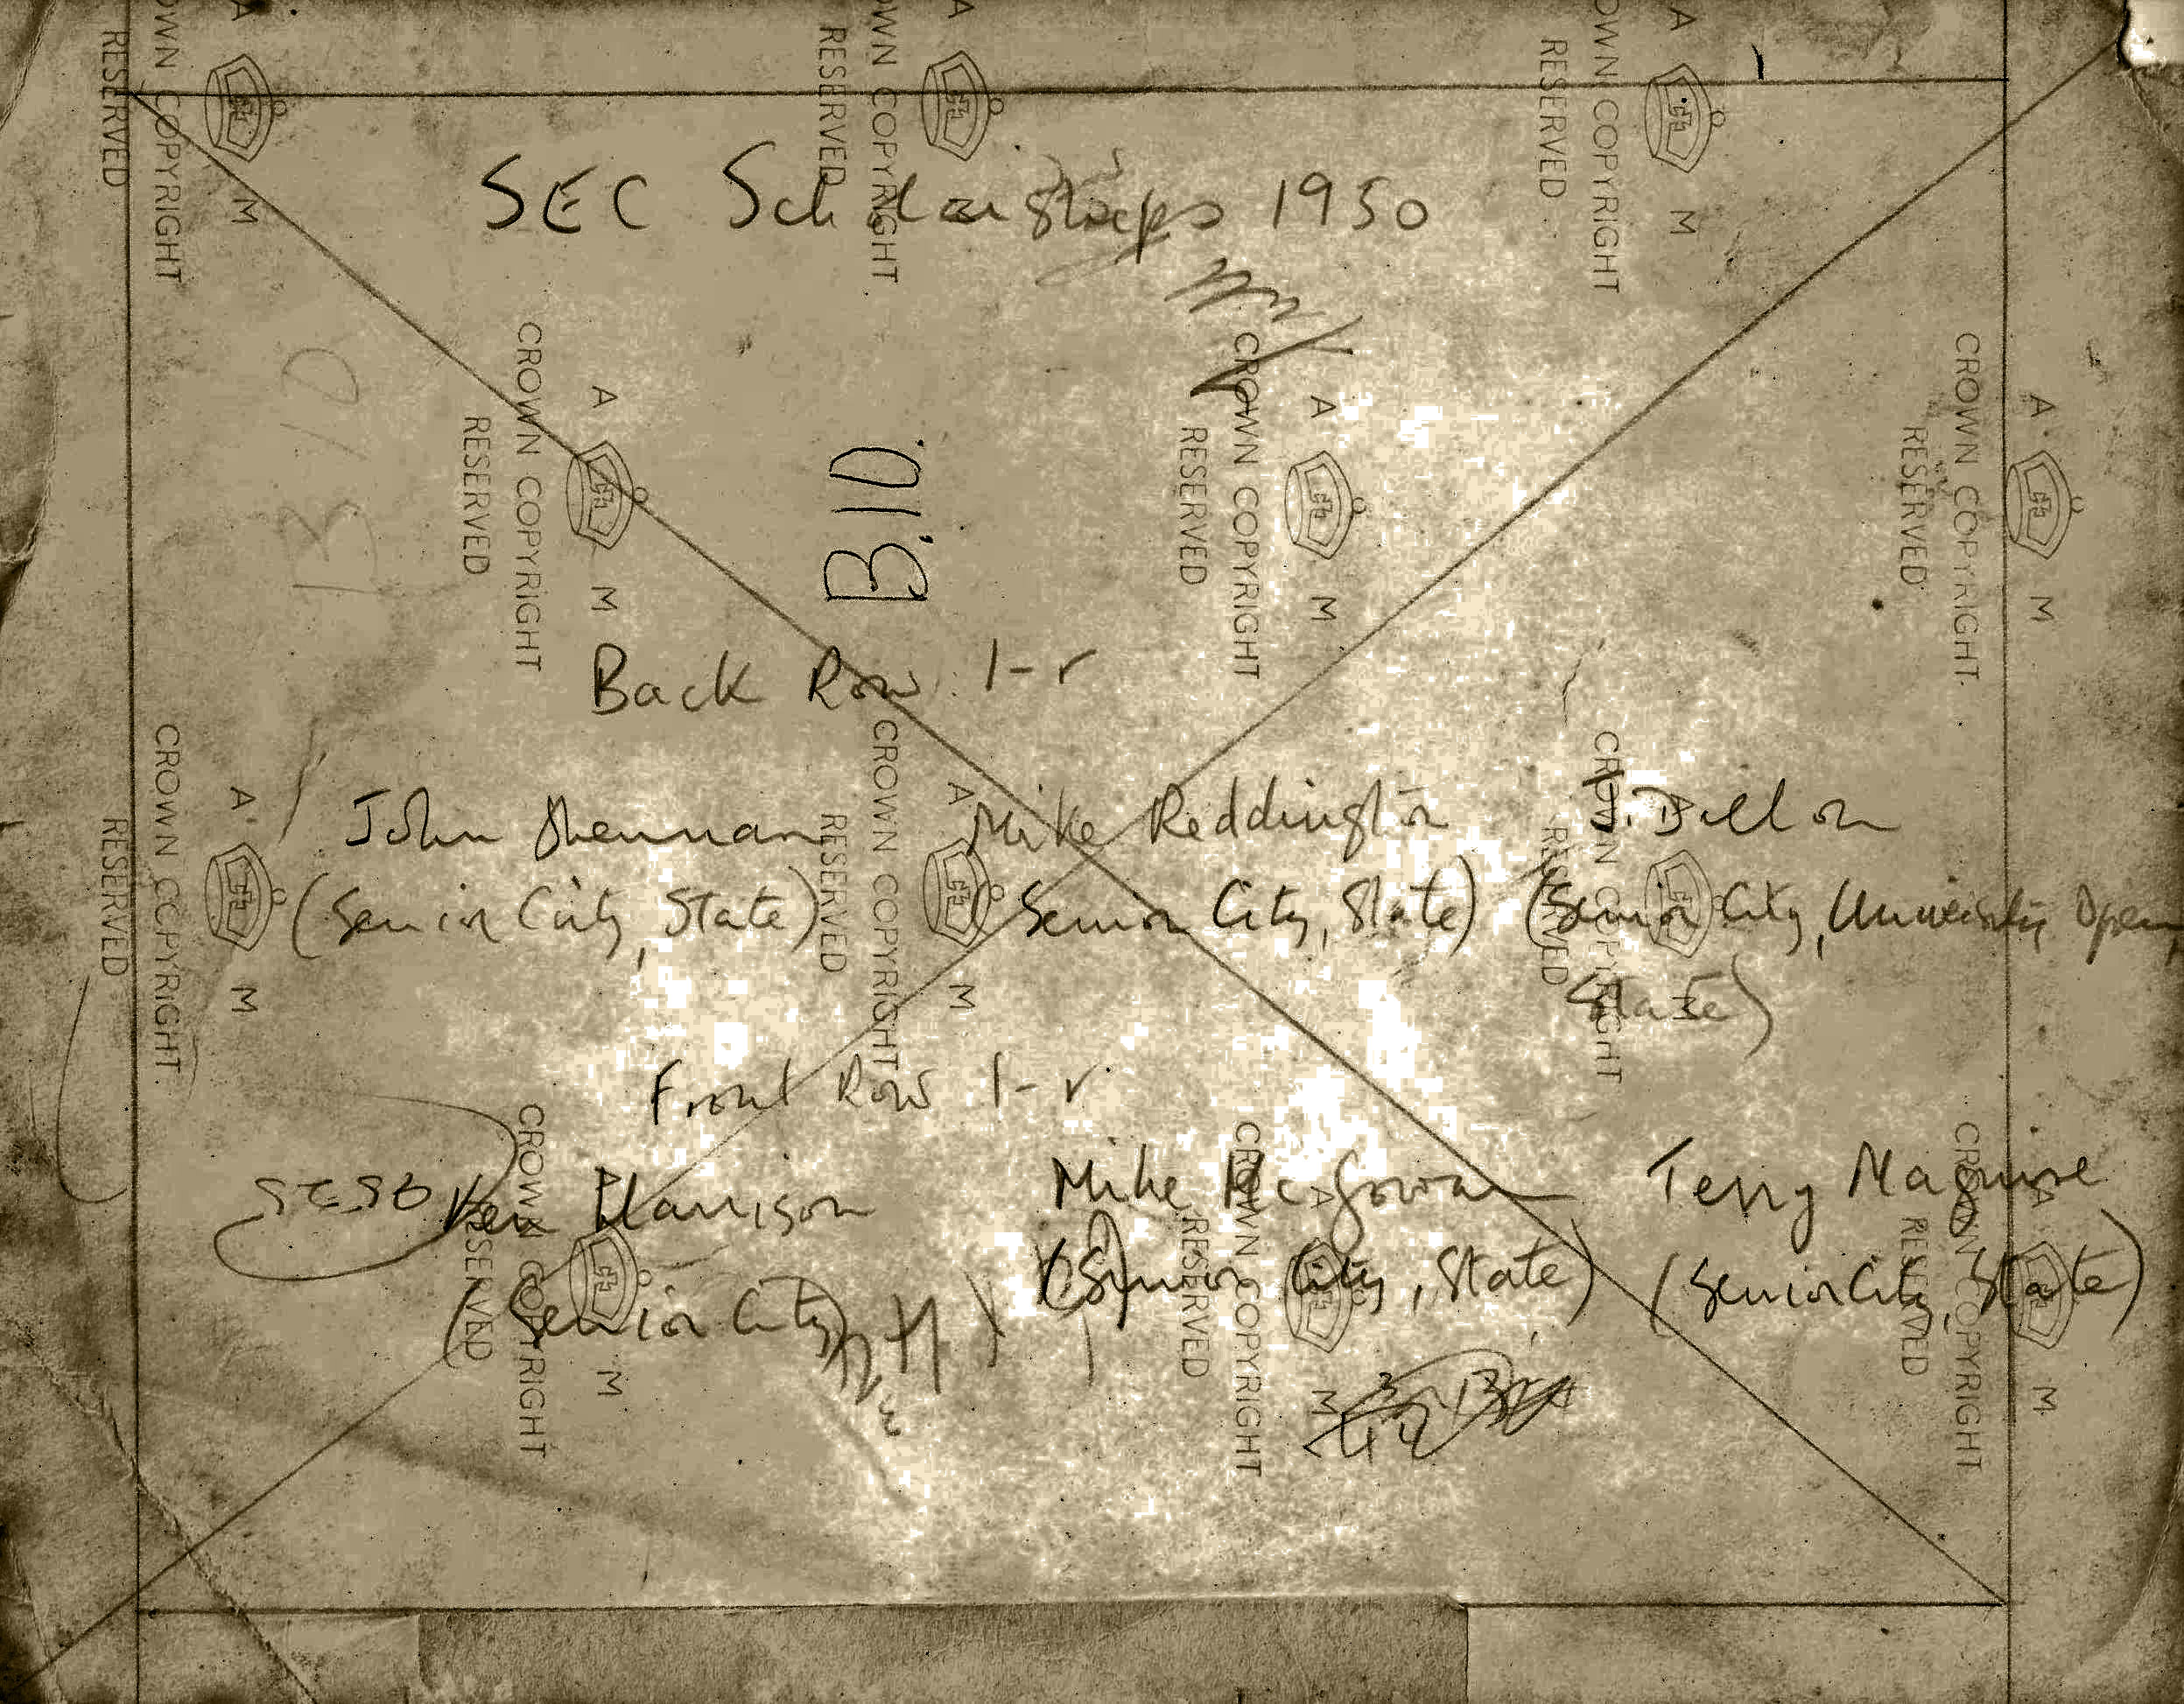 SEC Scholarships 1950
B.10.
B10
Back Row l-r
John Shennan Mike Reddington J. Dillon
(Senior City, State) (Senior City, State) (Senior City, University Open,
State)
Front Row l-r
Ken Harrison Mike McGowan Terry Maguire
(Senior City) (Senior City, State) (Senior City, State)
A M
CROWN COPYRIGHT
RESERVED